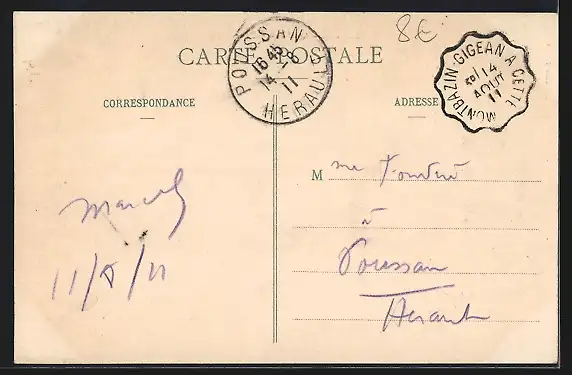 8€
CARTE POSTALE
POUSSAN
16 45
14 -8
11
HERAULT
MONTBAZIN-GIGEAN A CETTE
14
AOUT
11
CORRESPONDANCE
ADRESSE
M me
à
Poussan
Herault
Marcel
11/8/11